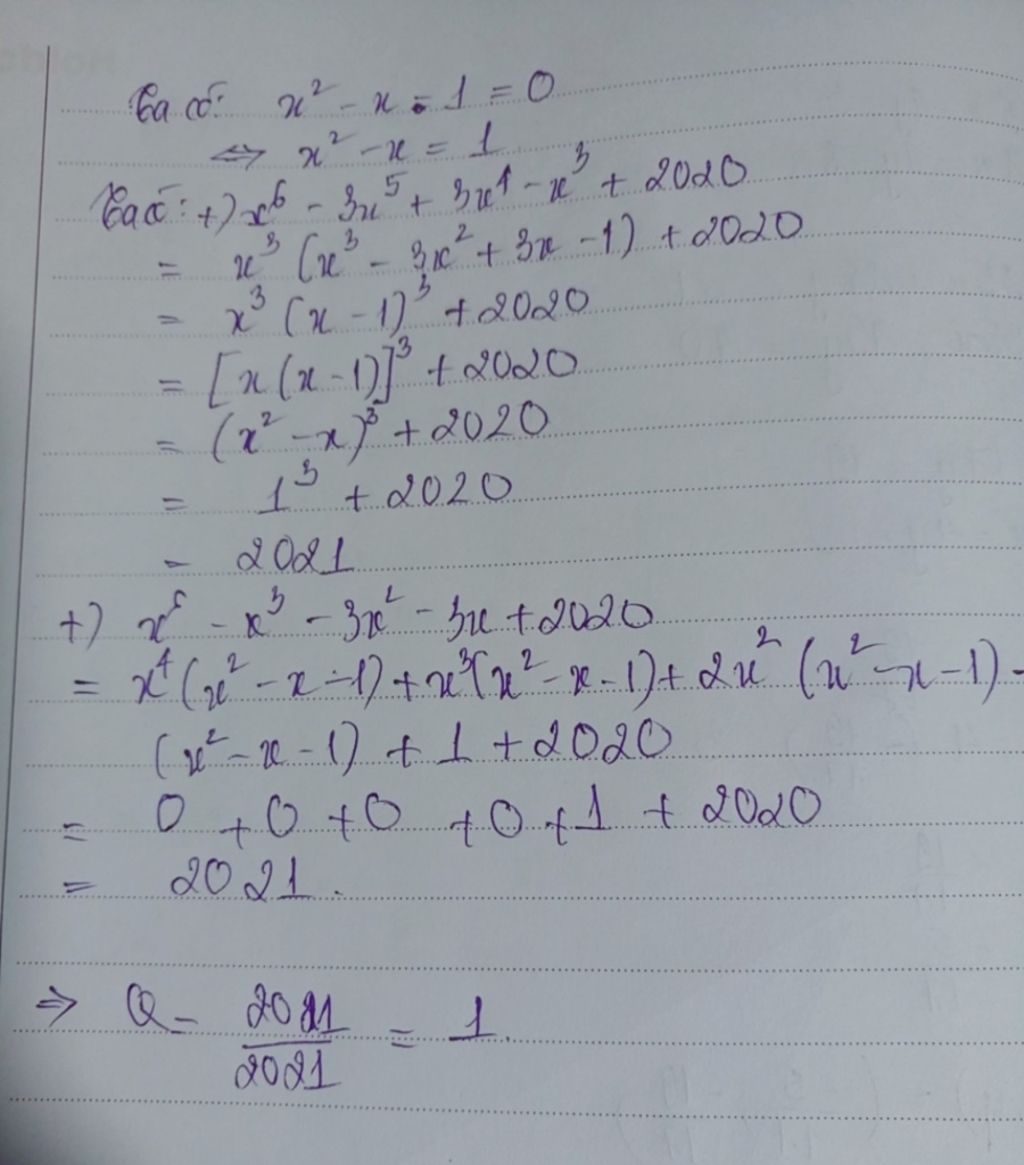 Ta có: x² - x - 1 = 0
⇔ x² - x = 1
Ta có: +) x⁶ - 3x⁵ + 3x⁴ - x³ + 2020
= x³ (x³ - 3x² + 3x - 1) + 2020
= x³ (x - 1)³ + 2020
= [x (x - 1)]³ + 2020
= (x² - x)³ + 2020
= 1³ + 2020
= 2021
+) x⁶ - x³ - 3x² - 3x + 2020
= x⁴ (x² - x - 1) + x³ (x² - x - 1) + 2x² (x² - x - 1) -
(x² - x - 1) + 1 + 2020
= 0 + 0 + 0 + 0 + 1 + 2020
= 2021.
⇒ Q = 2021/2021 = 1.